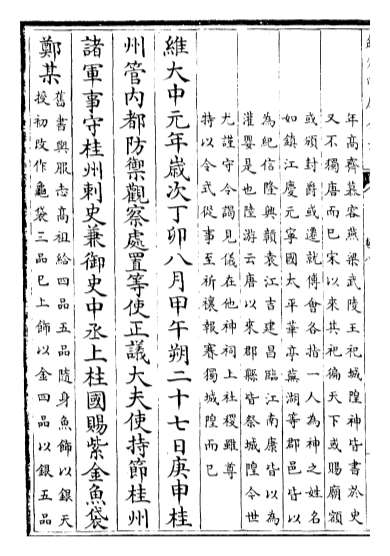 年高齊慕容燕梁武陵王祀城隍神皆書於史
又不獨唐而已宋以來其祀徧天下或賜廟額
或頒封爵或遷就傅會各指一人為神之姓名
如鎮江慶元寧國太平華亭蕪湖等郡邑皆以
為紀信隆興贛袁江吉建昌臨江南康皆以為
灌嬰是也陸游云唐以來郡縣皆祭城隍今世
尤謹守令謁見儀在他神祠上社稷雖尊
特以令式從事至祈禳報賽獨城隍而已
維大中元年歲次丁卯八月甲午朔二十七日庚申桂
州管內都防禦觀察處置等使正議大夫使持節桂州
諸軍事守桂州刺史兼御史中丞上柱國賜紫金魚袋
鄭某
舊書輿服志高祖給四品五品隨身魚飾以銀天
授初改作龜袋三品已上飾以金四品以銀五品